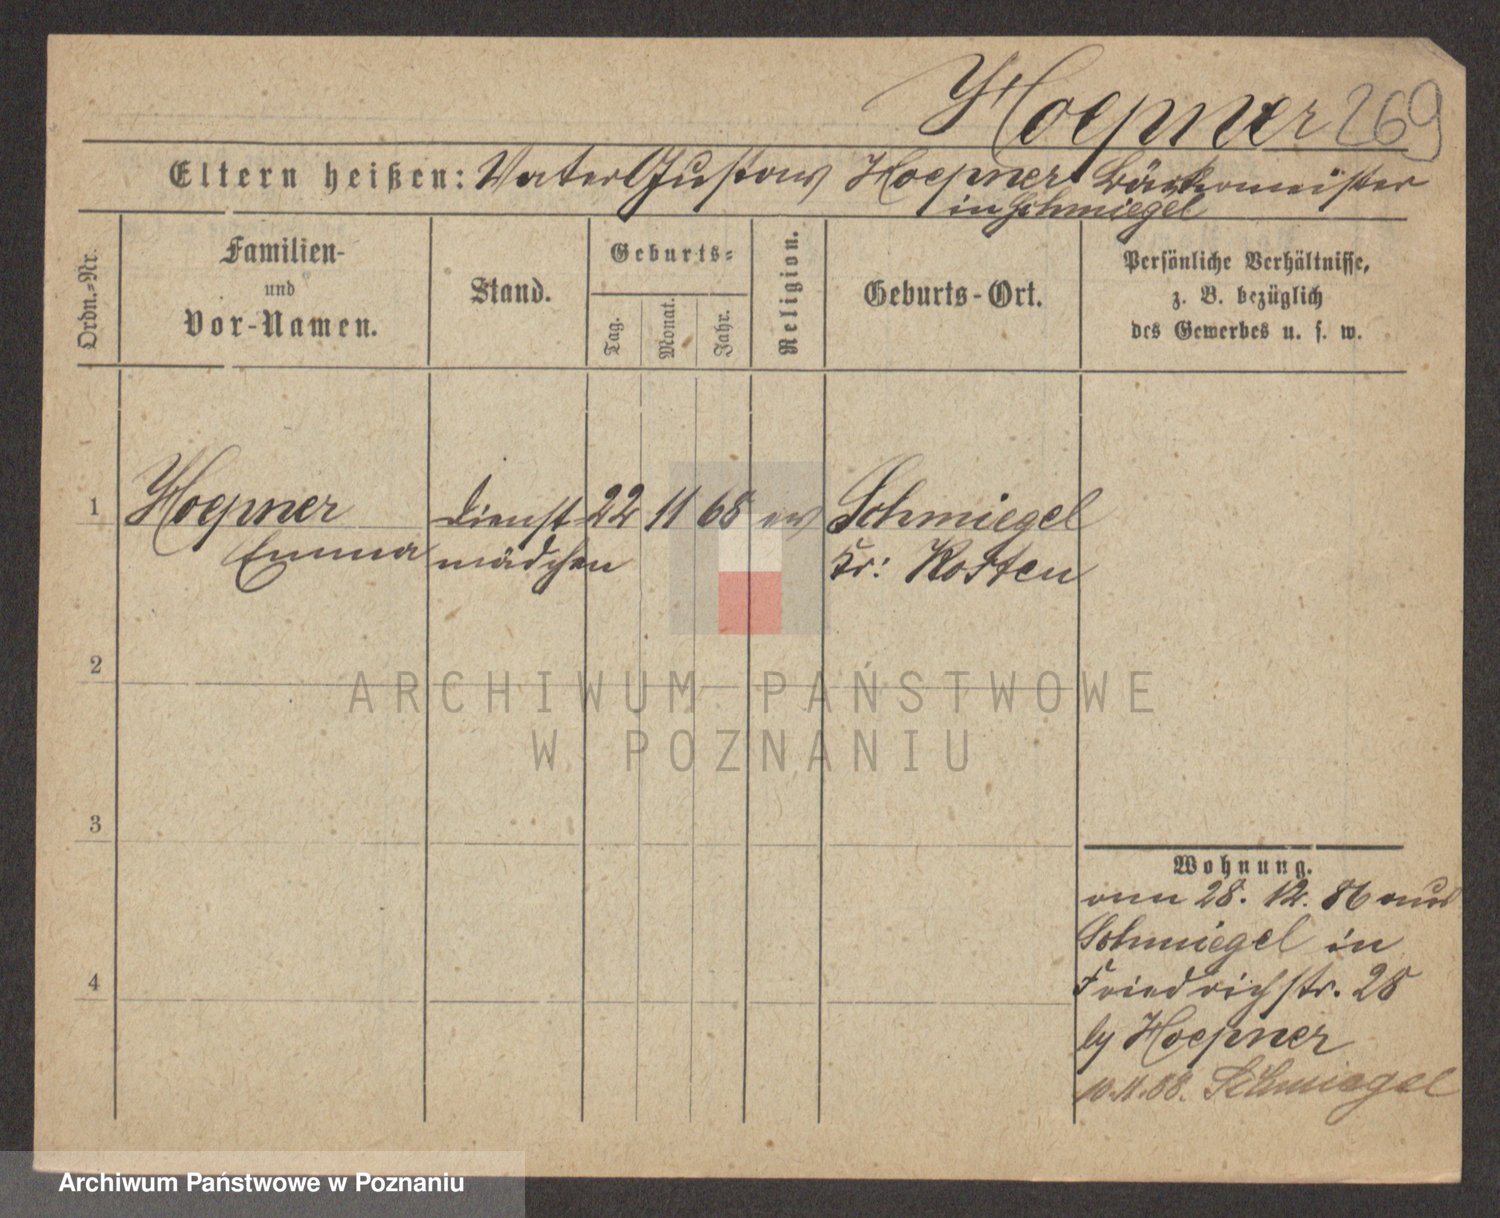 Hoepner 269
Eltern heißen: Vater Gustav Hoepner Bäckermeister
in Schmiegel
Ordn.-Nr.
Familien-
und
Vor-Namen.
Stand.
Geburts-
Tag.
Monat.
Jahr.
Religion.
Geburts-Ort.
Persönliche Verhältnisse,
z. B. bezüglich
des Gewerbes u. s. w.
1 Hoepner Dienst 22 11 68 ev Schmiegel
Emma mädchen Kr: Kosten
2
3
4
Wohnung.
am 28. 12. 86 aus
Schmiegel in
Friedrichstr. 28
by Hoepner
10.11.88. Schmiegel
ARCHIWUM PAŃSTWOWE
W POZNANIU
Archiwum Państwowe w Poznaniu